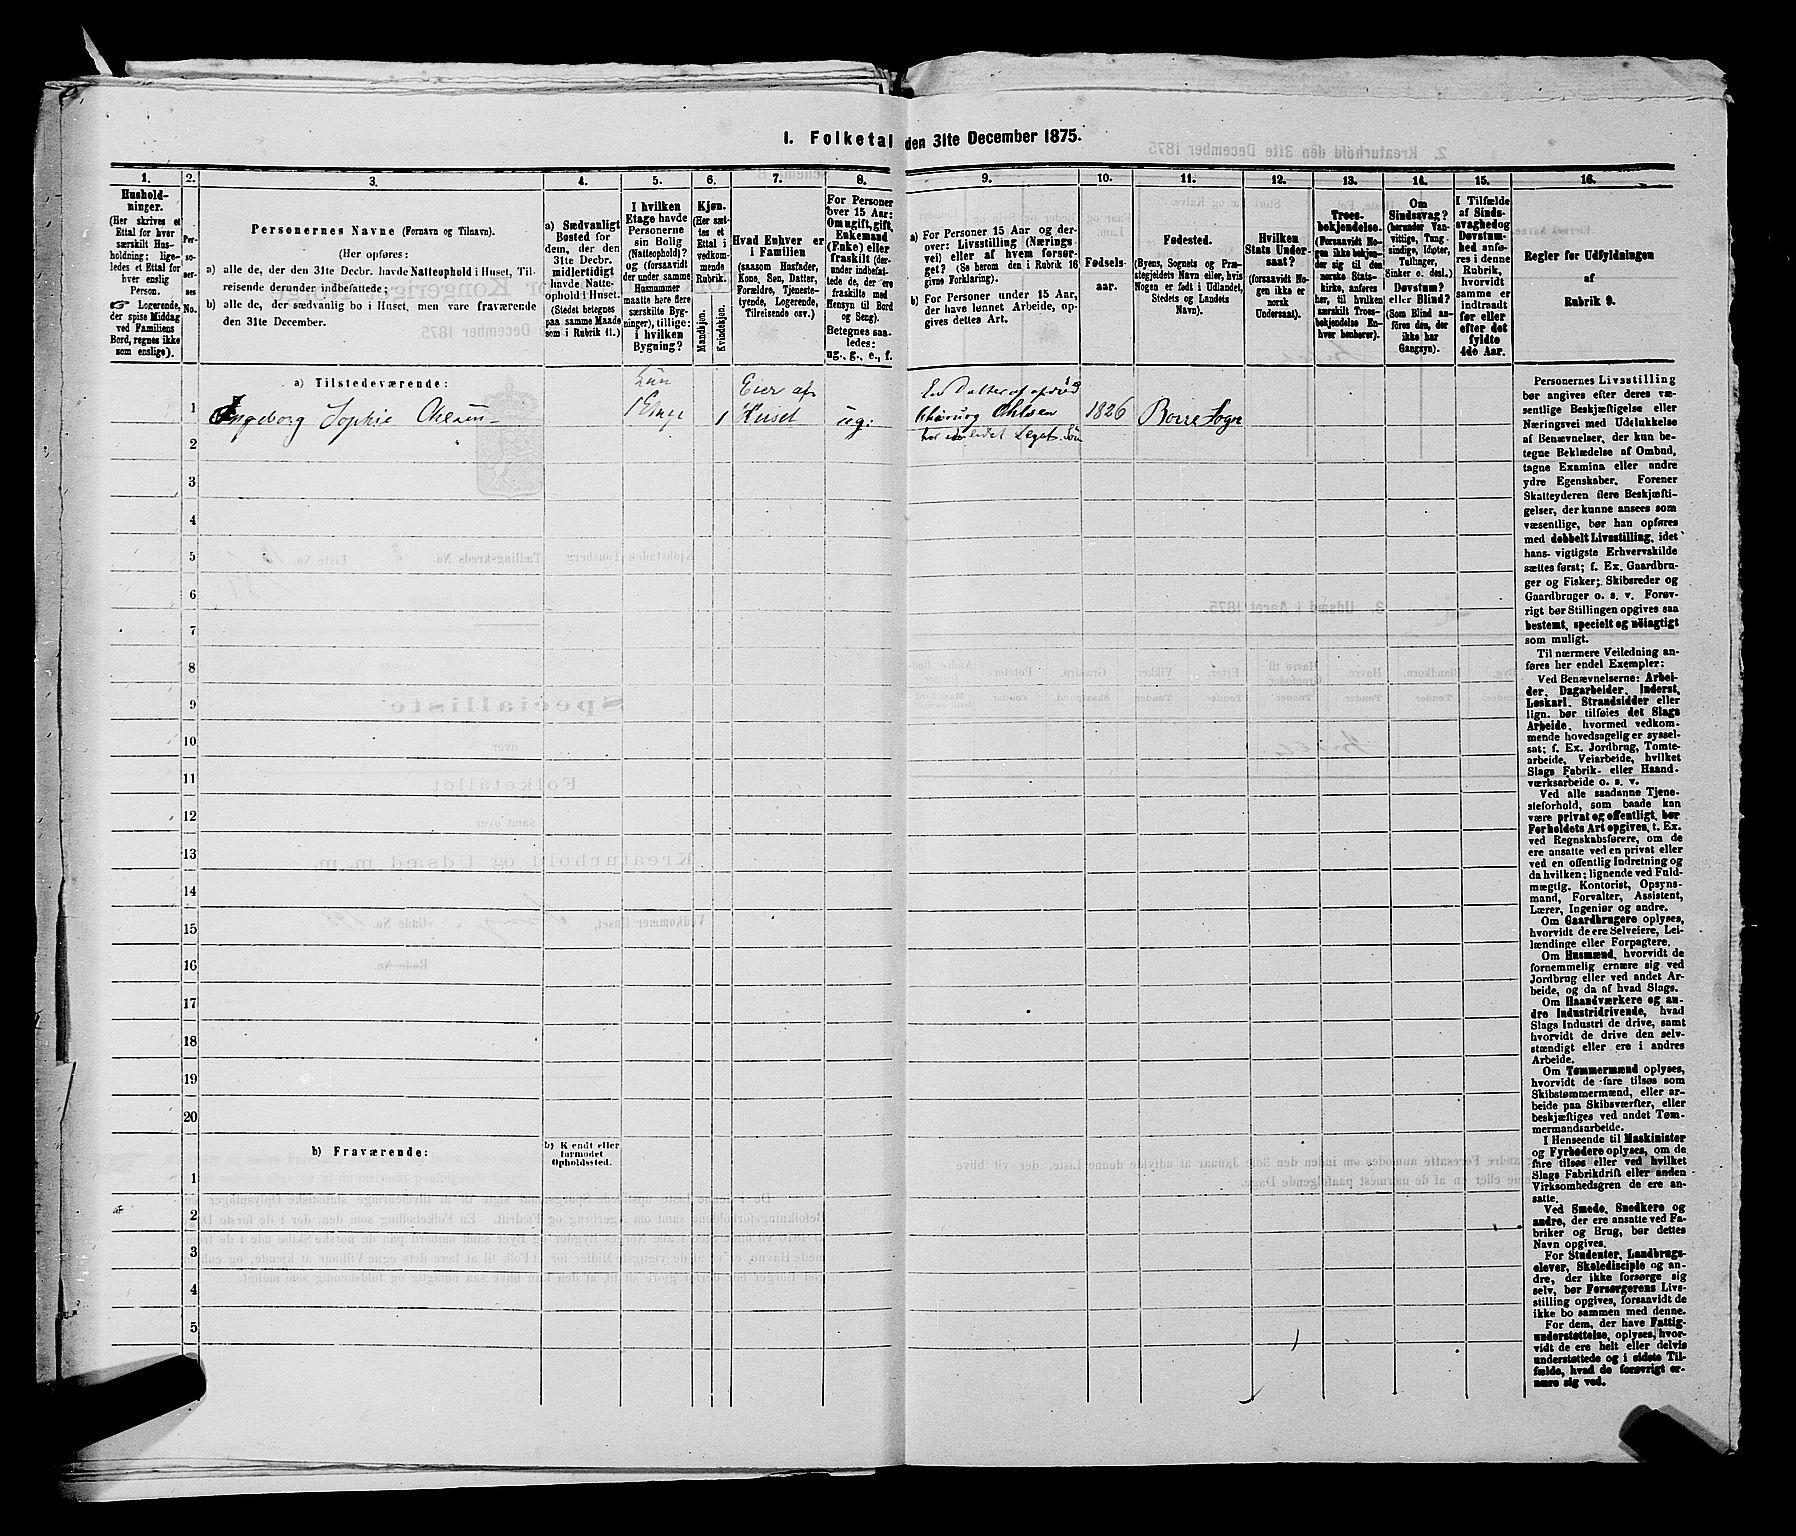 1. Folketal den 31te December 1875.
1.
Hushold-
ninger.
(Her skrives et
Ettal for hver
særskilt Hus-
holdning; lige-
ledes et Ettal for
hver enslig
Person.
☞ Logerende,
der spise Middag
ved Familiens
Bord, regnes ikke
som enslige).
2.
Per-
so-
ner-
nes
No.
3.
Personernes Navne (Fornavn og Tilnavn).
(Her opføres:
a) alle de, der den 31te Decbr. havde Natteophold i Huset, Til-
reisende derunder indbefattede;
b) alle de, der sædvanlig bo i Huset, men vare fraværende
den 31te December.
4.
a) Sædvanligt
Bosted for
dem, der den
31te Decbr.
midlertidigt
havde Natte-
ophold i Huset.
(Stedet betegnes
paa samme Maade
som i Rubrik 11.)
5.
I hvilken
Etage havde
Personerne
sin Bolig
(Natteophold)?
og (forsaavidt
der under samme
Husnummer
maatte høre flere
særskilte Byg-
ninger), tillige:
i hvilken
Bygning?
6.
Kjøn.
(Her sæt-
tes et
Ettal i
vedkom-
mende
Rubrik.
Mandkjøn.
Kvindekjøn.
7.
Hvad Enhver er
i Familien
(saasom Husfader,
Kone, Søn, Datter,
Forældre, Tjeneste-
tyende, Logerende,
Tilreisende osv.)
8.
For Personer
over 15 Aar:
Om ugift, gift,
Enkemand
(Enke) eller
fraskilt (der-
under indbefat-
tede de, der ere
fraskilte med
Hensyn til Bord
og Seng).
Betegnes saa-
ledes:
ug., g., e., f.
9.
a) For Personer 15 Aar og der-
over: Livsstilling (Nærings-
vei) eller af hvem forsør-
get? (Se herom den i Rubrik 16
givne Forklaring).
b) For Personer under 15 Aar,
der have lønnet Arbeide, op-
gives dettes Art.
10.
Fødsels-
aar.
11.
Fødested.
(Byens, Sognets og Præ-
stegjeldets Navn eller, hvis
Nogen er født i Udlandet,
Stedets og Landets
Navn).
12.
Hvilken
Stats Under-
saat?
(forsaavidt No-
gen ikke er
norsk
Undersaat).
13.
Troes-
bekjendelse.
(Forsaavidt No-
gen ikke bekjen-
der sig til den
norske Stats-
kirke, anføres
her, til hvilken
særskilt Troes-
bekjendelse En-
hver henhører).
14.
Om
Sindssvag?
(herunder Van-
vittige, Tung-
sindige, Idioter,
Tullinger,
Sinker o. desl.)
Døvstum?
eller Blind?
(Som Blind an-
føres den, der
ikke har
Gangsyn).
15.
I Tilfælde
af Sinds-
svaghed og
Døvstum-
hed anfø-
res i denne
Rubrik,
hvorvidt
samme er
indtraadt
før eller
efter det
fyldte
4de Aar.
16.
Regler for Udfyldningen
af
Rubrik 9.
a) Tilstedeværende:
1 Ingeborg Sophie
1 Etage 1 Eier af
Huset ug:
En Datter af
Chirurg Ohlsen
1826 Borre Sogn
2
3
4
5
6
7
8
9
10
11
12
13
14
15
16
17
18
19
20
b) Fraværende:
b) Kjendt eller
formodet
Opholdssted.
1
2
3
4
5
Personernes Livsstilling
bør angives efter deres væ-
sentlige Beskjæftigelse eller
Næringsvei med Udelukkelse
af Benævnelser, der kun be-
tegne Beklædelse af Ombud,
tagne Examina eller andre
ydre Egenskaber. Forener
Skatteyderen flere Beskjæfti-
gelser, der kunne ansees som
væsentlige, bør han opføres
med dobbelt Livsstilling, idet
hans vigtigste Erhvervskilde
sættes først; f. Ex. Gaardbru-
ger og Fisker; Skibsreder og
Gaardbruger o. s. v. Forøv-
rigt bør Stillingen opgives saa
bestemt, specielt og nøiagtigt
som muligt.
Til nærmere Veiledning an-
føres her endel Exempler:
Ved Benævnelserne: Arbei-
der, Dagarbeider, Inderst,
Løskarl, Strandsidder eller
lign. bør tilføies det Slags
Arbeide, hvormed vedkom-
mende hovedsagelig er syssel-
sat; f. Ex. Jordbrug, Tomte-
arbeide, Veiarbeide, hvilket
Slags Fabrik- eller Haand-
værksarbeide o. s. v.
Ved alle saadanne Tjene-
steforhold, som baade kan
være privat og offentligt, bør
Forholdets Art opgives, t. Ex.
ved Regnskabsførere, om de
ere ansatte ved en privat eller
ved en offentlig Indretning og
da hvilken; lignende ved Fuld-
mægtig, Kontorist, Opsyns-
mand, Forvalter, Assistent,
Lærer, Ingeniør og andre.
Om Gaardbrugere oplyses,
hvorvidt de ere Selveiere, Lei-
lændinge eller Forpagtere.
Om Husmænd, hvorvidt de
fornemmelig ernære sig ved
Jordbrug eller ved andet Ar-
beide, og da af hvad Slags.
Om Haandværkere og an-
dre Industridrivende, hvad
Slags Industri de drive, samt
hvorvidt de drive den selv-
stændigt eller ere i andres
Arbeide.
Om Tømmermænd oplyses,
hvorvidt de fare tilsøs som
Skibstømmermænd, eller ar-
beide paa Skibsværfter, eller
beskjæftiges ved andet Tøm-
mermandsarbeide.
I Henseende til Maskinister
og Fyrbødere oplyses, om de
fare tilsøs eller ved hvilket
Slags Fabrikdrift eller anden
Virksomhedsgren de ere an-
satte.
Ved Smede, Snedkere og
andre, der ere ansatte ved Fa-
briker og Brug, bør dettes
Navn opgives.
For Studenter, Landbrugs-
elever, Skoledisciple og an-
dre, der ikke forsørge sig
selv, bør Forsørgerens Livs-
stilling opgives, forsaavidt de
ikke bo sammen med denne.
For dem, der have Fattig-
understøttelse, oplyses, hvor-
vidt de ere helt eller delvis
understøttede og i sidste Til-
fælde, hvad de forøvrigt er-
nære sig ved.